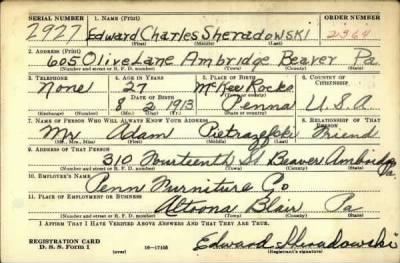 SERIAL NUMBER 1. NAME (Print) ORDER NUMBER
2927 Edward Charles Sheradowski 2364
(First) (Middle) (Last)
2. ADDRESS (Print)
605 Olive Lane Ambridge Beaver Pa
(Number and street or R. F. D. number) (Town) (County) (State)
3. TELEPHONE 4. AGE IN YEARS 5. PLACE OF BIRTH 6. COUNTRY OF CITIZENSHIP
None 27 McKees Rocks
DATE OF BIRTH
8 2 1913 Penna U.S.A
(Exchange) (Number) (Mo.) (Day) (Yr.) (State or country)
7. NAME OF PERSON WHO WILL ALWAYS KNOW YOUR ADDRESS 8. RELATIONSHIP OF THAT PERSON
Mr Adam Friend
(Mr., Mrs., Miss) (First) (Middle) (Last)
9. ADDRESS OF THAT PERSON
310 Fourteenth St Beaver Ambridge Pa
(Number and street or R. F. D. number) (Town) (County) (State)
10. EMPLOYER'S NAME
Penn Furniture Co
11. PLACE OF EMPLOYMENT OR BUSINESS
Altoona Blair Pa
(Number and street or R. F. D. number) (Town) (County) (State)
I AFFIRM THAT I HAVE VERIFIED ABOVE ANSWERS AND THAT THEY ARE TRUE.
REGISTRATION CARD
D. S. S. Form 1 (over) 16—17105 Edward Sheradowski
(Registrant's signature)